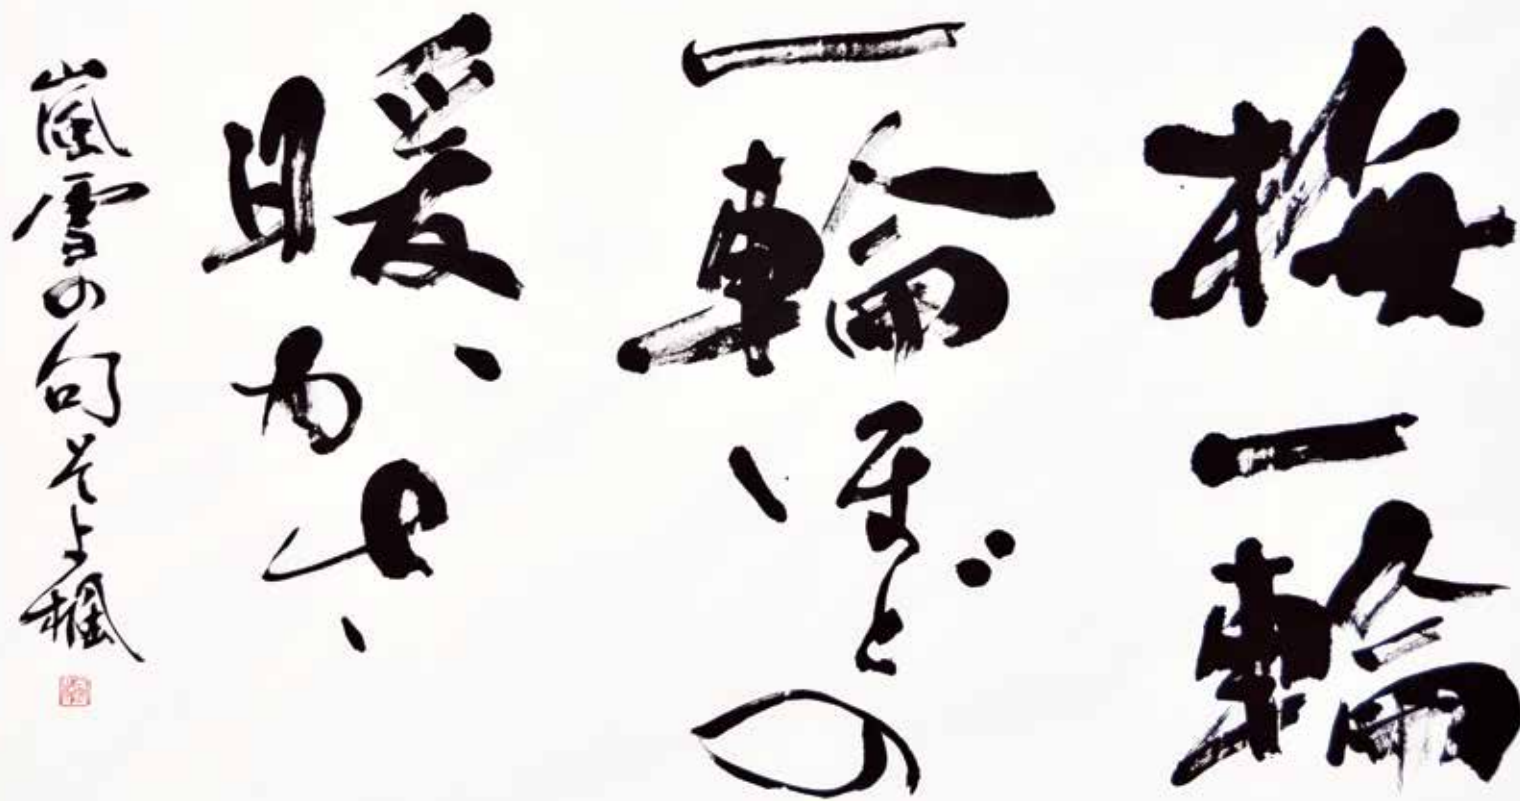 梅一輪
一輪ほどの
暖かさ
嵐雪の句そよ楓